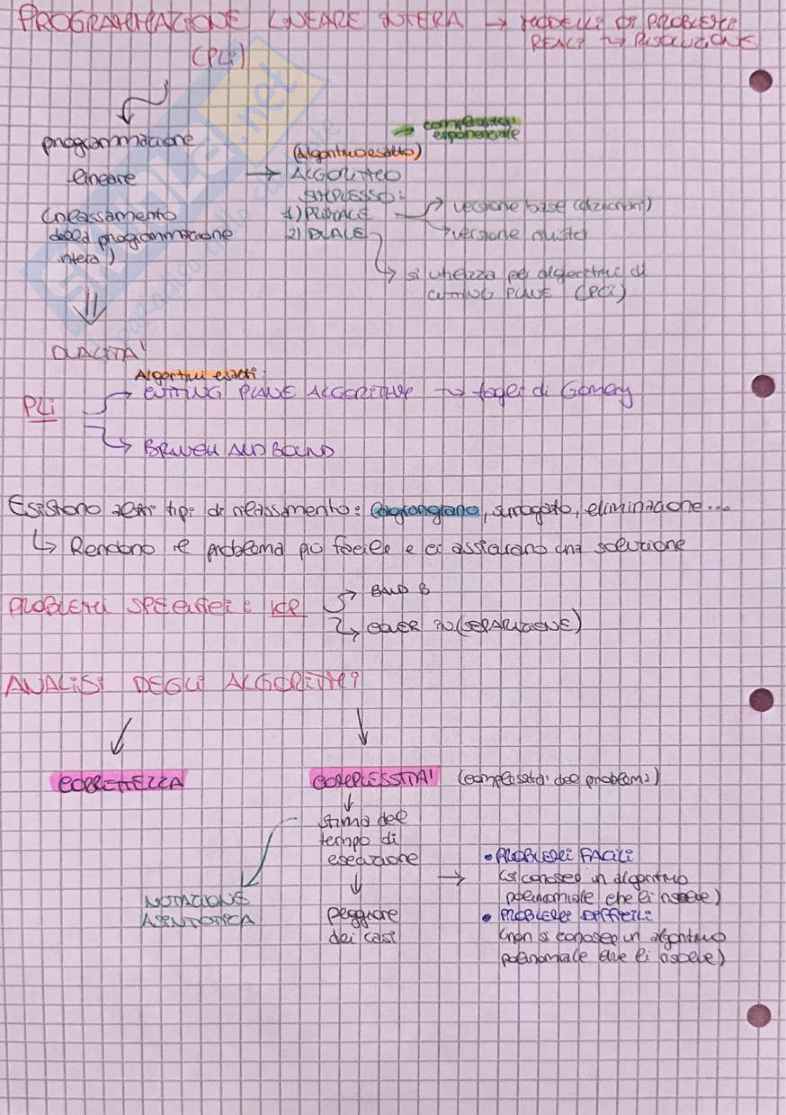 PROGRAMMAZIONE LINEARE INTERA → MODELLI DI PROBLEMI
REALI → RISOLUZIONE
(PLI)
programmazione
lineare
(rilassamento
della programmazione
intera)
→ complessità
esponenziale
(Algoritmo esatto)
→ ALGORITMO
SIMPLESSO:
1) PRIMALE → versione base (dizionari)
2) DUALE → versione
→ si utilizza per algoritmi di
CUTTING PLANE (PLI)
DUALITA'
Algoritmi esatti:
PLI → CUTTING PLANE ALGORITHM → tagli di Gomory
→ BRANCH AND BOUND
Esistono altri tipi di rilassamento: lagrangiano, surrogato, eliminazione...
↳ Rendono il problema più facile e ci assicurano una soluzione
PROBLEMI SPECIFICI: KP → B AND B
→ COVER IN (SEPARAZIONE)
ANALISI DEGLI ALGORITMI
CORRETTEZZA
COMPLESSITA' (complessità del problema)
stima del
tempo di
esecuzione
NOTAZIONE
ASINTOTICA
peggiore
dei casi
→ • PROBLEMI FACILI
(si conosce un algoritmo
polinomiale che li risolve)
• PROBLEMI DIFFICILI
(non si conosce un algoritmo
polinomiale che li risolve)